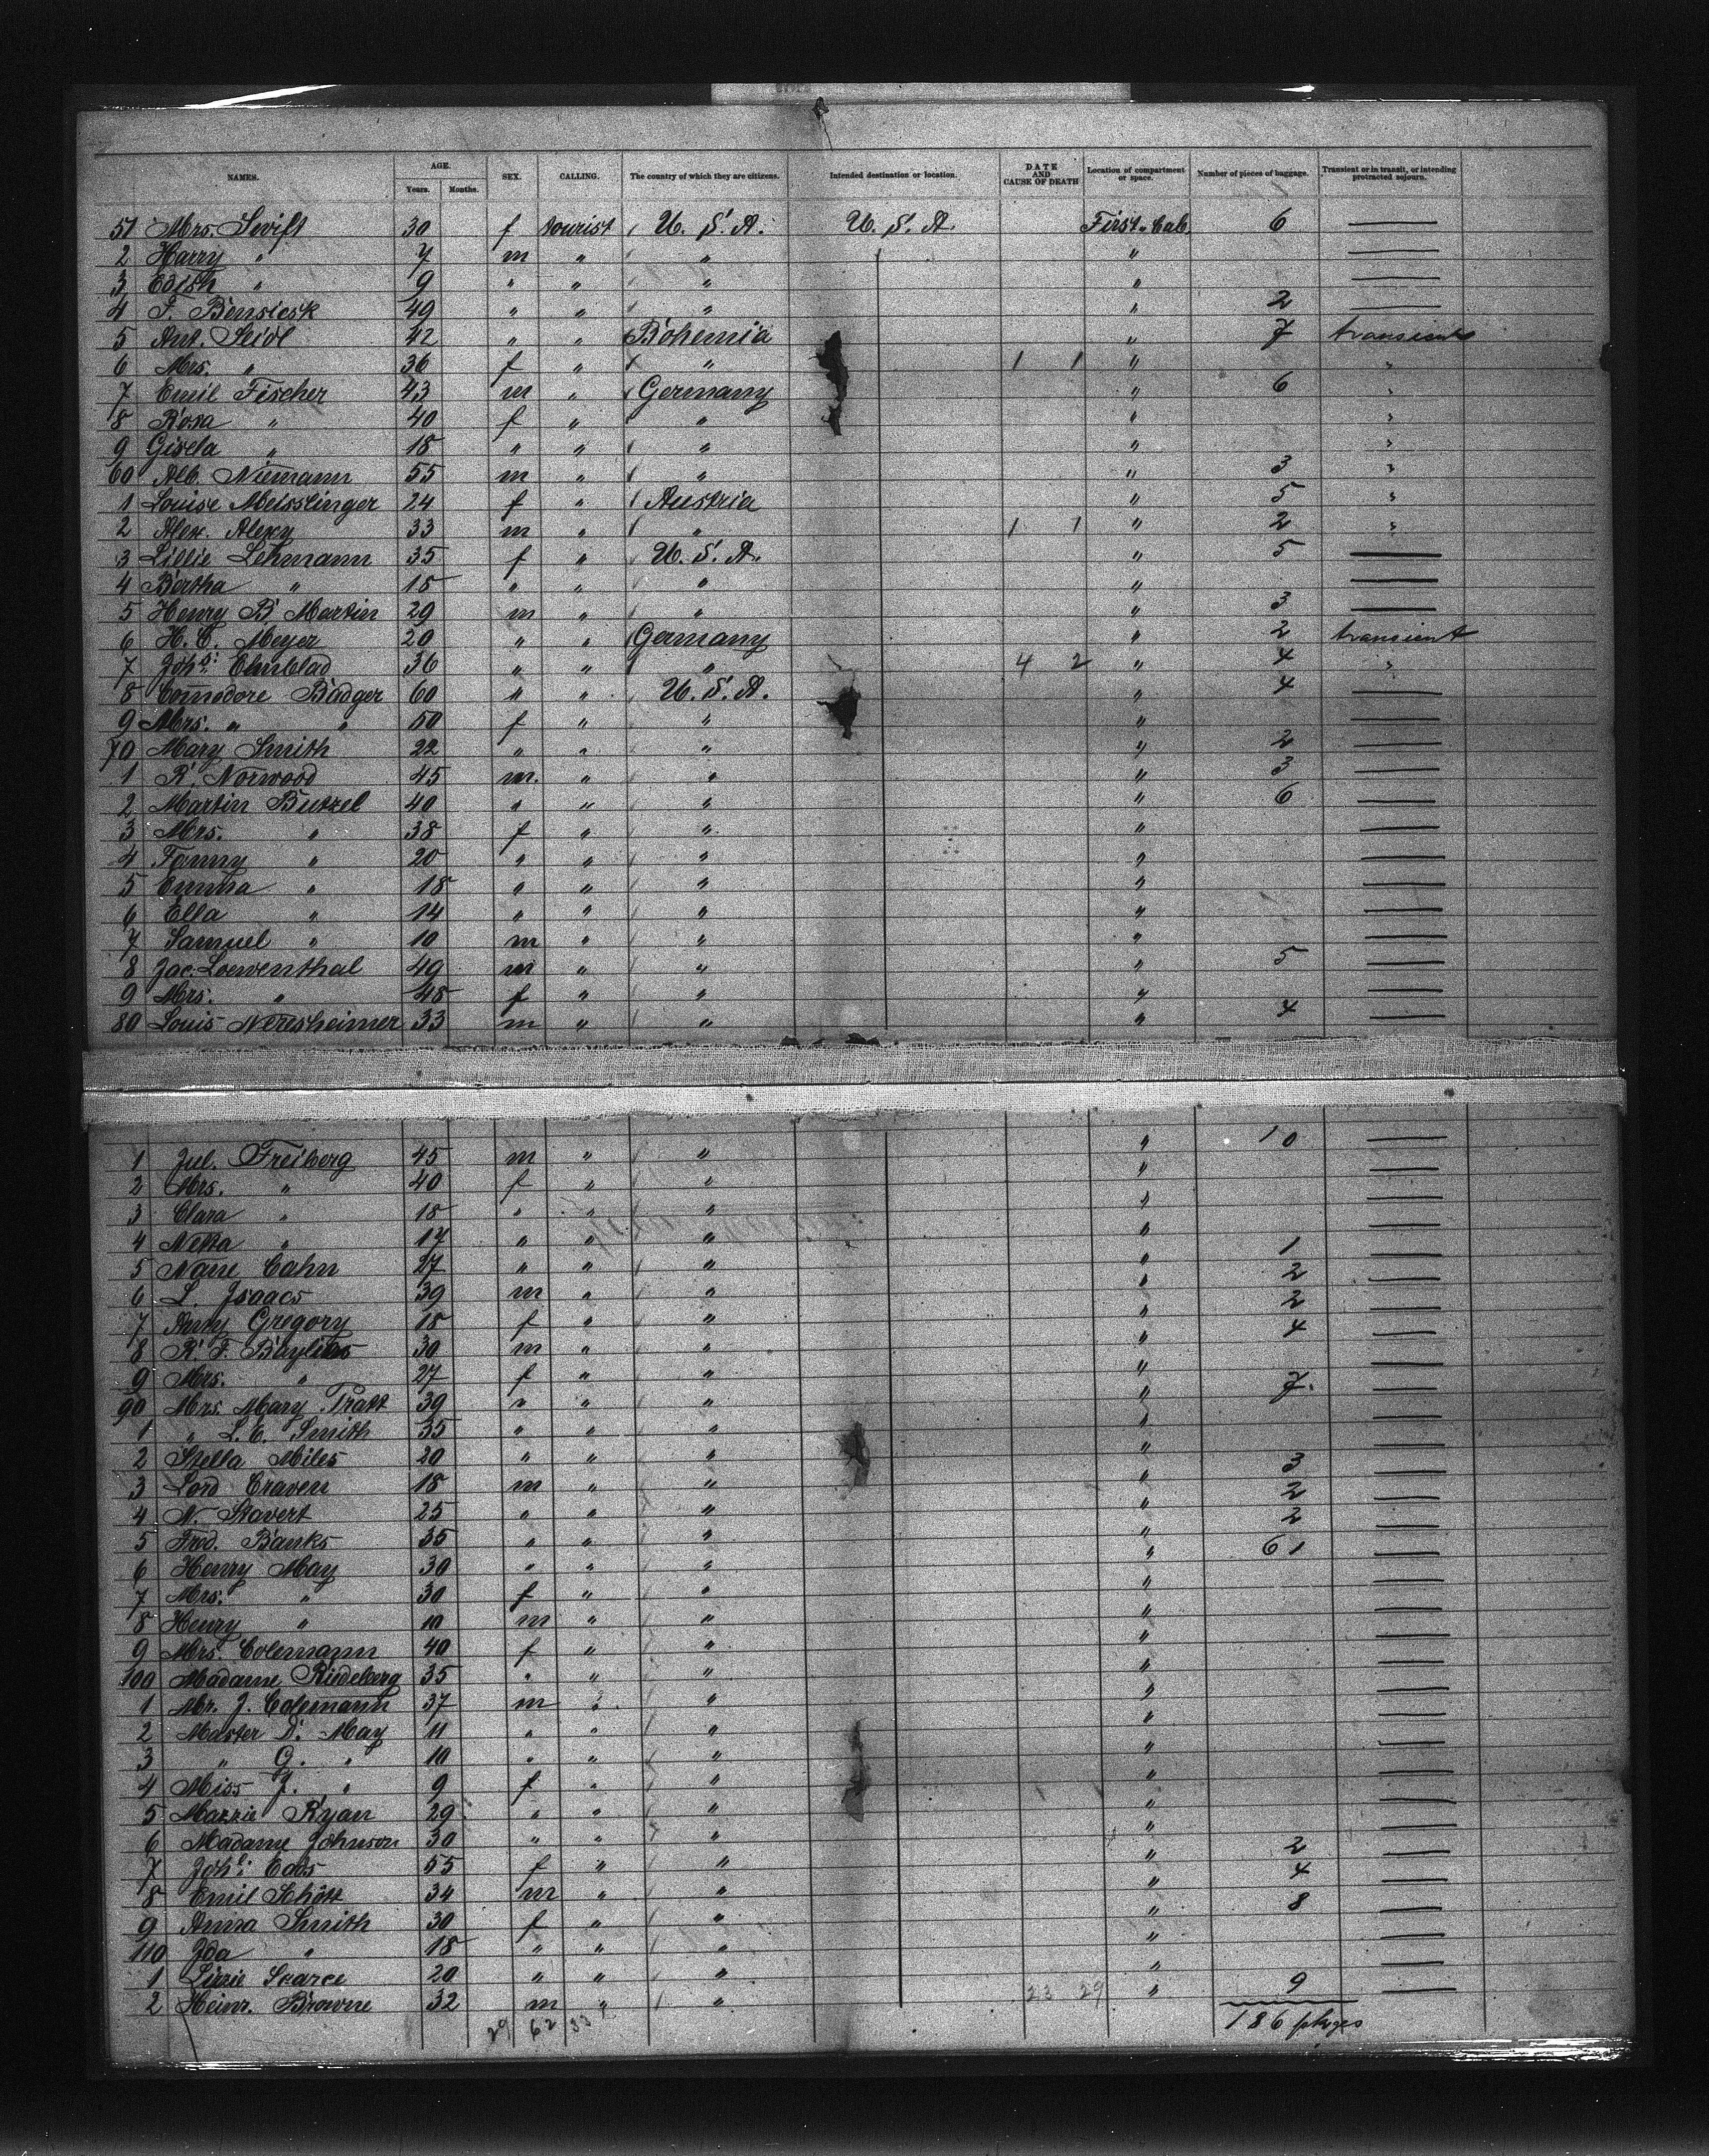 NAMES. AGE. Years. Months. SEX. CALLING. The country of which they are citizens. Intended destination or location. DATE AND CAUSE OF DEATH Location of compartment or space. Number of pieces of baggage. Transient or in transit, or intending protracted sojourn.
51 Mrs. Swift 30 f tourist U. S. A. U. S. A. First Cab. 6 —
2 Harry " 7 m " " " —
3 Edith " 9 " " " " —
4 F. Bensiesk 49 " " " " 2 —
5 Ant. Seidl 42 " " Bohemia " 7 transient
6 Mrs. " 36 f " " 1 1 " "
7 Emil Fischer 43 m " Germany " 6 "
8 Rosa " 40 f " " " "
9 Gisela " 18 " " " " "
60 Alb. Niemann 55 m " " " 3 "
1 Louise Meisslinger 24 f " Austria " 5 "
2 Alex. Alexy 33 m " " 1 1 " 2 "
3 Lillie Lehmann 35 f " U. S. A. " 5 —
4 Bertha " 18 " " " " —
5 Henry B Martin 29 m " " " 3 —
6 H. C. Meyer 20 " " Germany " 2 transient
7 Johs. Elmblad 36 " " " 4 2 " 4 "
8 Comodore Badger 60 " " U. S. A. " 4 —
9 Mrs. " " 50 f " " " —
70 Mary Smith 22 " " " " 2 —
1 R Norwood 45 m. " " " 3 —
2 Martin Butzel 40 " " " " 6 —
3 Mrs. " 38 f " " " —
4 Fanny " 20 " " " " —
5 Emma " 18 " " " " —
6 Ella " 14 " " " " —
7 Samuel " 10 m " " " —
8 Jac. Loewenthal 49 m " " " 5 —
9 Mrs. " 48 f " " " —
80 Louis Neresheimer 33 m " " " 4 —
1 Jul. Freiberg 45 m " " " 10 —
2 Mrs. " 40 f " " " —
3 Clara " 18 " " " " —
4 Netta " 17 " " " " —
5 Nane Cahn 27 " " " " 1 —
6 L. Isaacs 39 m " " " 2 —
7 Amy Gregory 18 f " " " 2 —
8 R F. 30 m " " " 4 —
9 Mrs. " 27 f " " " —
90 Mrs. Mary Pratt 39 " " " " 7. —
1 " L. C. Smith 35 " " " " —
2 Stella Miles 20 " " " " —
3 Lord Craven 18 m " " " 3 —
4 N. Stavert 25 " " " " 2 —
5 Fred. Banks 35 " " " " 2 —
6 Henry May 30 " " " " 61 —
7 Mrs. " 30 f " " " —
8 Henry " 10 m " " " —
9 Mrs. Colemann 40 f " " " —
100 Madame Riedelberg 35 " " " " —
1 Mr. J. Colemann 37 m " " " —
2 Master D. May 11 " " " " —
3 " G. " 10 " " " " —
4 Miss J. " 9 f " " " —
5 Mazzie Ryan 29 " " " " —
6 Madame Johnson 30 " " " " —
7 Johs. Eads 55 f " " " 2 —
8 Emil Schött 34 m " " " 4 —
9 Anna Smith 30 f " " " 8 —
110 Ida " 18 " " " " —
1 Lizzie Searce 20 " " " " —
2 Heinr. Browne 32 m " " 23 29 " 9 —
29 62 33 186 pkges